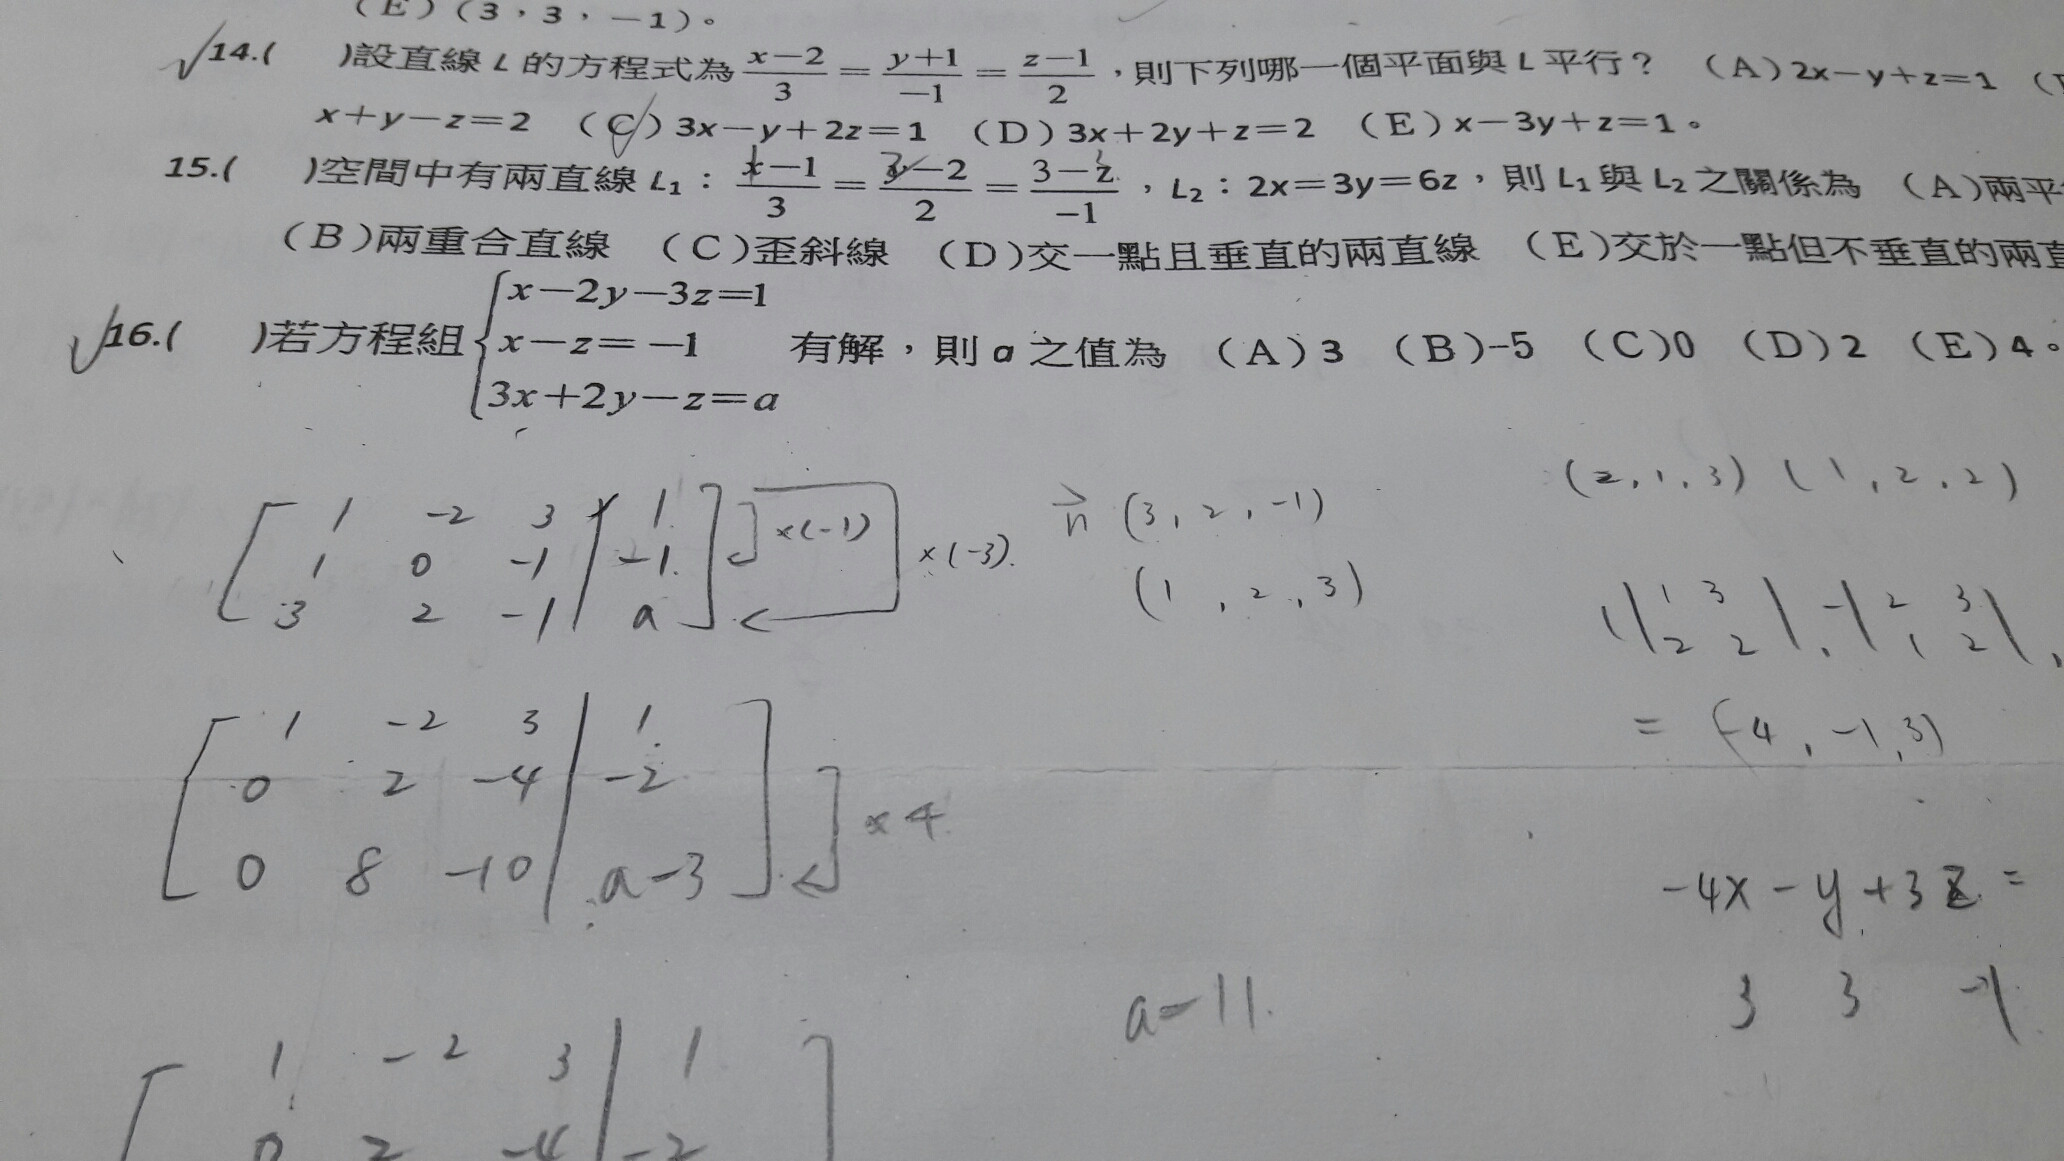 (E)(3,3,-1)。
14.( )設直線 L 的方程式為 x-2/3 = y+1/-1 = z-1/2,則下列哪一個平面與 L 平行? (A)2x-y+z=1 (
x+y-z=2 (C)3x-y+2z=1 (D)3x+2y+z=2 (E)x-3y+z=1。
15.( )空間中有兩直線 L₁:x-1/3 = y-2/2 = 3-z/-1,L₂:2x=3y=6z,則 L₁與 L₂之關係為 (A)兩平
(B)兩重合直線 (C)歪斜線 (D)交一點且垂直的兩直線 (E)交於一點但不垂直的兩直
16.( )若方程組 有解,則 a 之值為 (A)3 (B)-5 (C)0 (D)2 (E)4。
x-2y-3z=1
x-z=-1
3x+2y-z=a
1 -2 3 | 1
1 0 -1 | -1
3 2 -1 | a
×(-1)
×(-3)
n (3,2,-1)
(1,2,3)
(2,1,3) (1,2,2)
(|1 3
2 2|, -|2 3
1 2|,
= (-4,-1,3)
1 -2 3 | 1
0 2 -4 | -2
0 8 -10 | a-3
×4
-4x-y+3z=
3 3 -1
a=11.
1 -2 3 | 1
0 2 -4 | -2